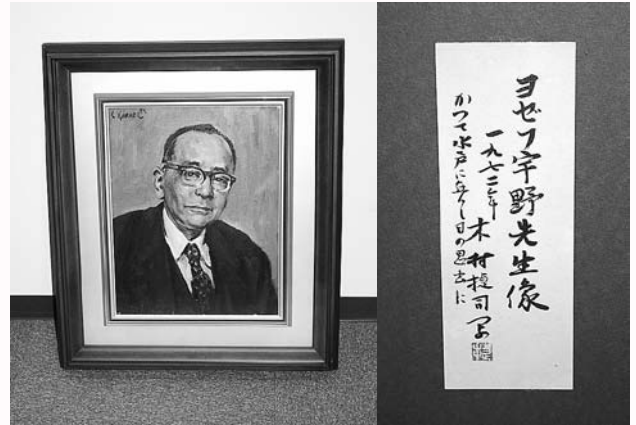 ヨゼフ宇野先生像
一九七二年 木村捷司写
かつて水戸に在りし日の思出に